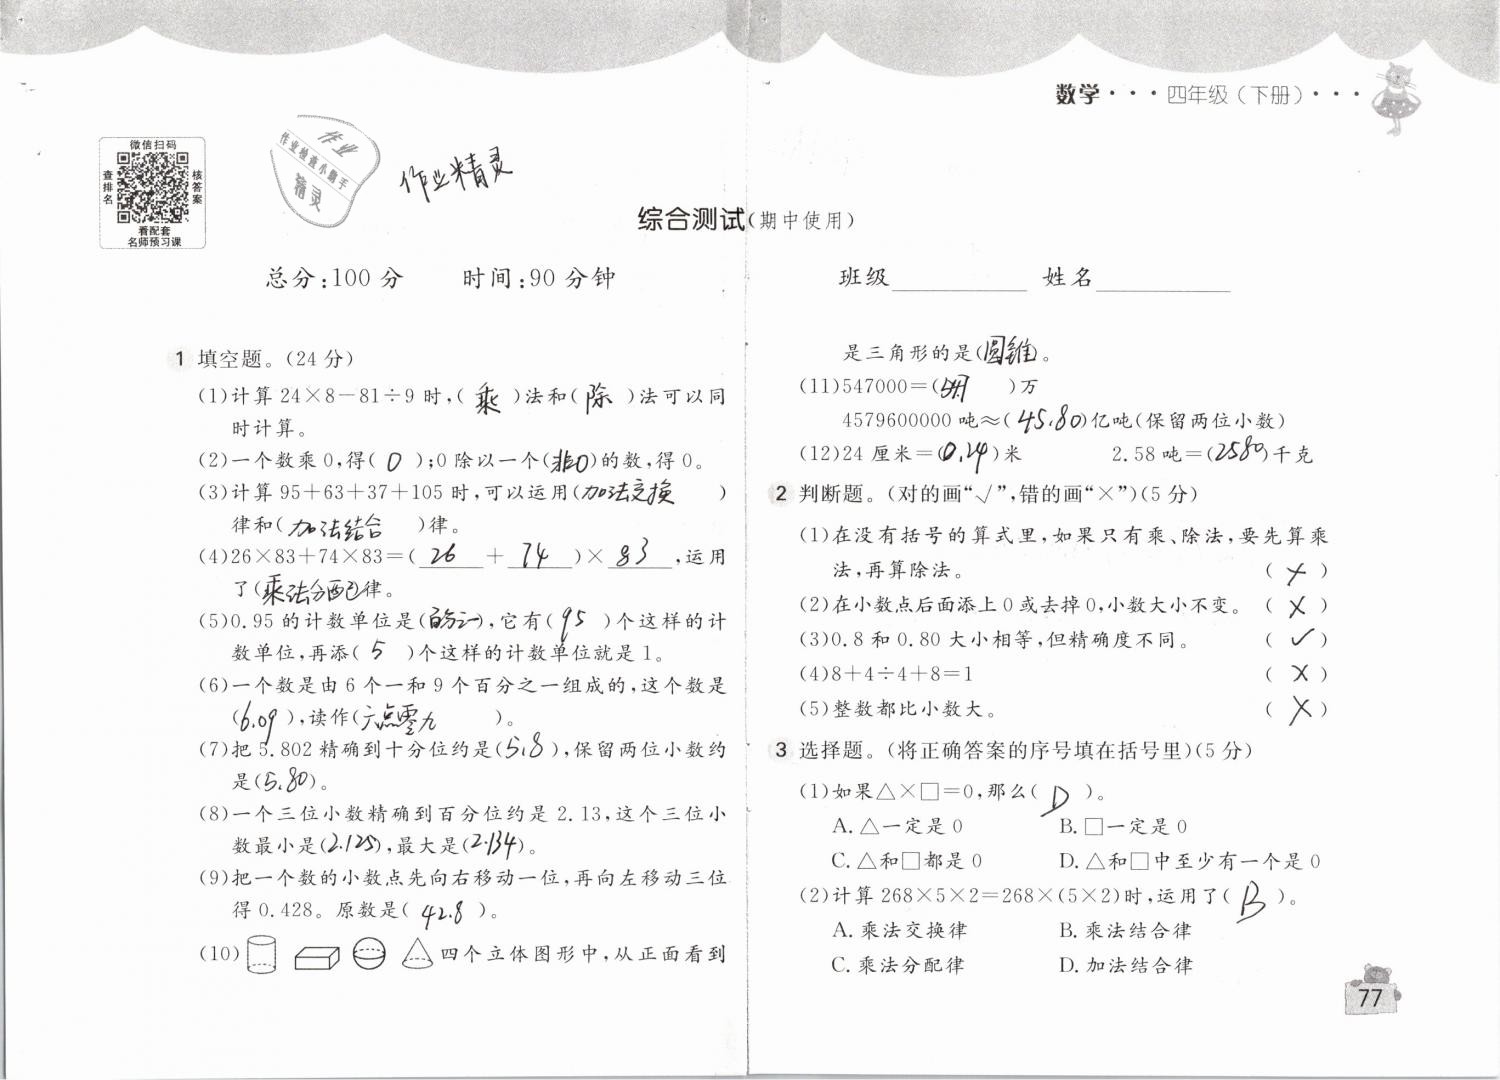 数学···四年级(下册)···
微信扫码
查排名
核答案
看配套
名师预习课
作业
作业检查小助手
精灵
作业精灵
综合测试(期中使用)
总分:100分 时间:90分钟
班级 姓名
1 填空题。(24分)
(1)计算24×8-81÷9时,(乘)法和(除)法可以同
时计算。
(2)一个数乘0,得(0);0除以一个(非0)的数,得0。
(3)计算95+63+37+105时,可以运用(加法交换)
律和(加法结合)律。
(4)26×83+74×83=(26+74)×83,运用
了(乘法分配)律。
(5)0.95的计数单位是(百分之一),它有(95)个这样的计
数单位,再添(5)个这样的计数单位就是1。
(6)一个数是由6个一和9个百分之一组成的,这个数是
(6.09),读作(六点零九)。
(7)把5.802精确到十分位约是(5.8),保留两位小数约
是(5.80)。
(8)一个三位小数精确到百分位约是2.13,这个三位小
数最小是(2.125),最大是(2.134)。
(9)把一个数的小数点先向右移动一位,再向左移动三位
得0.428。原数是(42.8)。
(10) 四个立体图形中,从正面看到
是三角形的是(圆锥)。
(11)547000=( )万
4579600000吨≈(45.80)亿吨(保留两位小数)
(12)24厘米=(0.24)米 2.58吨=(2580)千克
2 判断题。(对的画“√”,错的画“×”)(5分)
(1)在没有括号的算式里,如果只有乘、除法,要先算乘
法,再算除法。 (×)
(2)在小数点后面添上0或去掉0,小数大小不变。 (×)
(3)0.8和0.80大小相等,但精确度不同。 (✓)
(4)8+4÷4+8=1 (×)
(5)整数都比小数大。 (×)
3 选择题。(将正确答案的序号填在括号里)(5分)
(1)如果△×□=0,那么(D)。
A.△一定是0 B.□一定是0
C.△和□都是0 D.△和□中至少有一个是0
(2)计算268×5×2=268×(5×2)时,运用了(B)。
A.乘法交换律 B.乘法结合律
C.乘法分配律 D.加法结合律
77